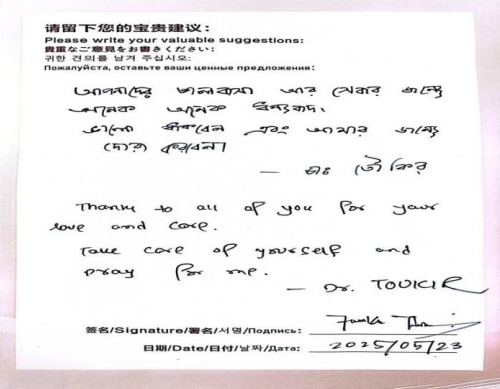 请留下您的宝贵建议：
Please write your valuable suggestions:
貴重なご意見をお書きください:
귀한 견의를 남겨 주십시오:
Пожалуйста, оставьте ваши ценные предложения:
আপনাদের ভালবাসা আর সেবার জন্যে
অনেক অনেক ধন্যবাদ।
ভালো থাকবেন এবং আমার জন্যে
দোয়া করবেন।
— ডাঃ তৌকির
Thanks to all of you for your
love and care.
Take care of yourself and
pray for me.
— Dr. TOUKIR
签名/Signature/署名/서명/Подпись:
日期/Date/日付/날짜/Дата: 2025/05/23